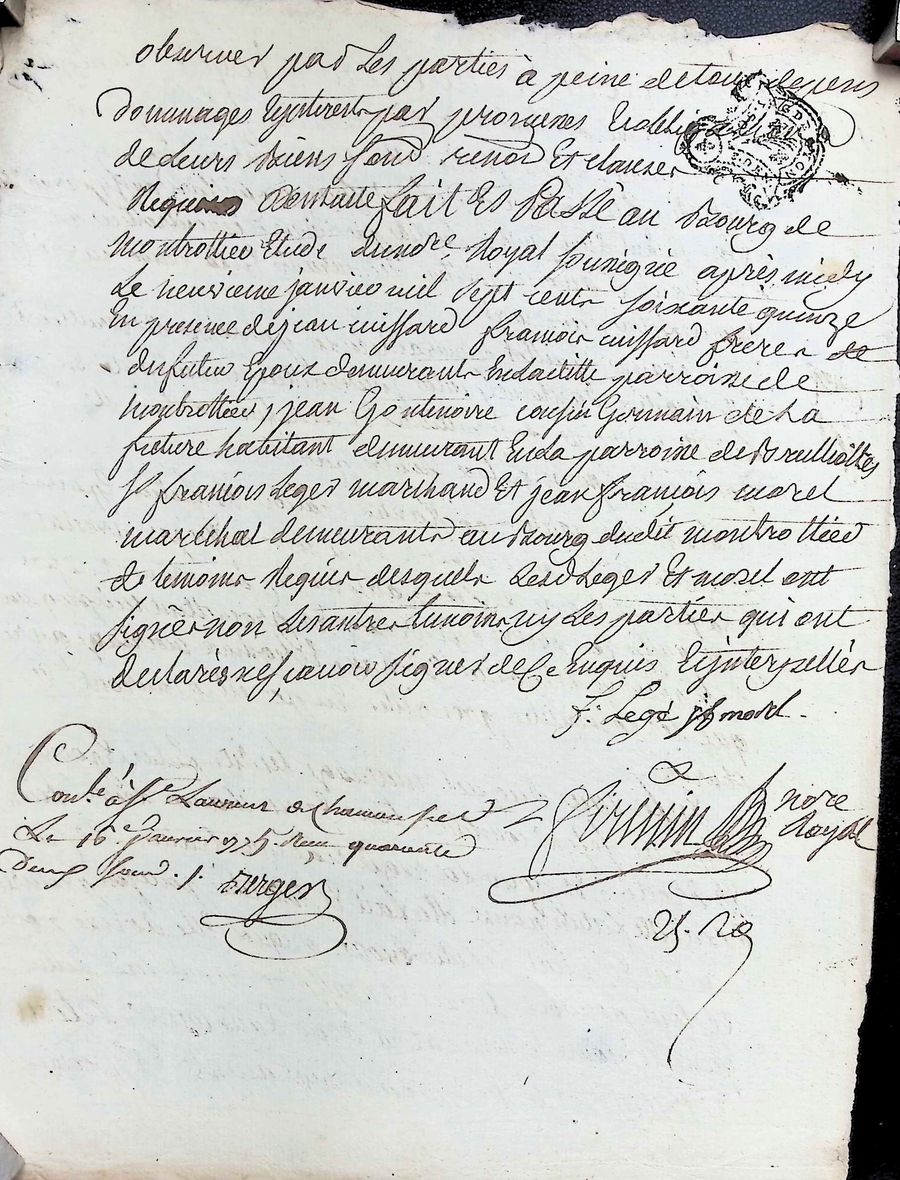 observer par Les parties à peine de tous depens
dommages Eynterests par promesses Et obligation
de Leurs Biens soud renond Et clauses
Requises Dontacte fait Et Passé au Bourg de
montrottier Etude du nore Royal soussigné après midy
Le neuvieme janvier mil sept cents soixante quinze
En presence de jean cuissard francois cuissard freres
du futur Epoux demeurants En parroisse de
montrottier, jean Gontenoire cousin Germain de La
future habitant demeurant En La parroisse de Brulliolles
Sr francois Leger marchand Et jean françois morel
maréchal demeurants au Bourg dudit montrottier
temoins Requis desquels Lesd Leger Et morel ont
signés non Les autres temoins ny Les parties qui ont
declarés ne sçavoir signer de Ce Enquis Eynterpellés
F: Legé jf morel.
Conlé à St Laurent de Chamousset
Le 16e Janvier 1775. Reçu quarante
Deux sous
Berger
nore
Royal